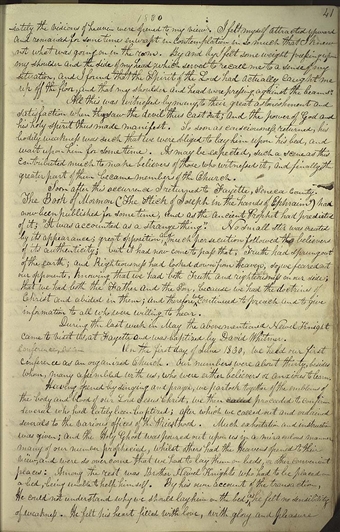 41
1830
diately the visions of heaven were opened to my view. I felt myself attracted upward
and remained for some time enwrapt in contemplation in so much that I knew
not what was going on in the room. By and by I felt some weight pressing upon
my shoulder and the side of my head which served to recall me to a sense of my
situation, and I found that the Spirit of the Lord had actually caught me
up off the floor, and that my shoulder and head were pressing against the beams.
All this was witnessed by many, to their great astonishment and
satisfaction when they saw the devil thus cast out, and the power of God and
his holy spirit thus made manifest. So soon as consciousness returned, his
bodily weakness was such that we were obliged to lay him upon his bed, and
wait upon him for some time. As may be expected, such a scene as this
contributed much to make believers of those who witnessed it, and finally the
greater part of them became members of the Church.
Soon after this occurrence I returned to Fayette, Seneca County.
The Book of Mormon ("The Stick of Joseph in the hands of Ephraim") had
now been published for some time, and as the ancient Prophet had predicted
of it; "It was accounted as a strange thing." No small stir was created
by its appearance; great opposition, and much persecution followed the believers
of its authenticity; but it had now come to pass that, Truth had sprung out
of the earth; and Righteousness had looked down from Heaven, so we feared not
our opponents, knowing that we had both Truth and righteousness on our side;
that we had both the Father and the Son, because we had the doctrines of
Christ and abided in them; and therefore we continued to preach and to give
information to all who were willing to hear.
During the last week in May the above mentioned Newel Knight
came to visit us at Fayette and was baptized by David Whitmer.
On the first day of June 1830, we held our first
conference as an organized Church. Our numbers were about thirty, besides
whom, many assembled with us who were either believers or anxious to learn.
Having opened by singing and prayer, we partook together of the emblems of
the body and blood of our Lord Jesus Christ; we then proceeded to confirm
several who had lately been baptized; after which we called out and ordained
several to the various offices of the Priesthood. Much exhortation and instruction
was given; and the Holy Ghost was poured out upon us in a miraculous manner
many of our number prophesied, whilst others had the heavens opened to their
view, and were so overcome that we had to lay them on beds, or other convenient
places: Among the rest was Brother Newel Knight who had to be placed on
a bed, being unable to help himself. By his own account of the transaction,
He could not understand why we should lay him on the bed, as he felt no sensibility
of weakness. He felt his heart filled with love, with glory and pleasure